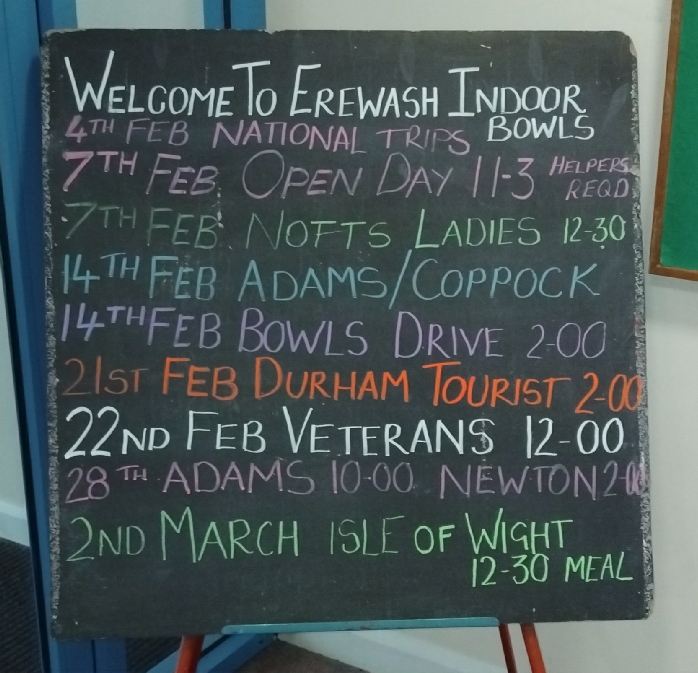 WELCOME TO EREWASH INDOOR
BOWLS
4TH FEB NATIONAL TRIPS
7TH FEB. OPEN DAY 11-3 HELPERS
REQD
7TH FEB. NOTTS LADIES 12-30
14TH FEB ADAMS/COPPOCK
14TH FEB BOWLS DRIVE 2-00
21ST FEB DURHAM TOURIST 2-00
22ND FEB VETERANS 12-00
28TH ADAMS 10-00 NEWTON 2-00
2ND MARCH ISLE OF WIGHT
12-30 MEAL